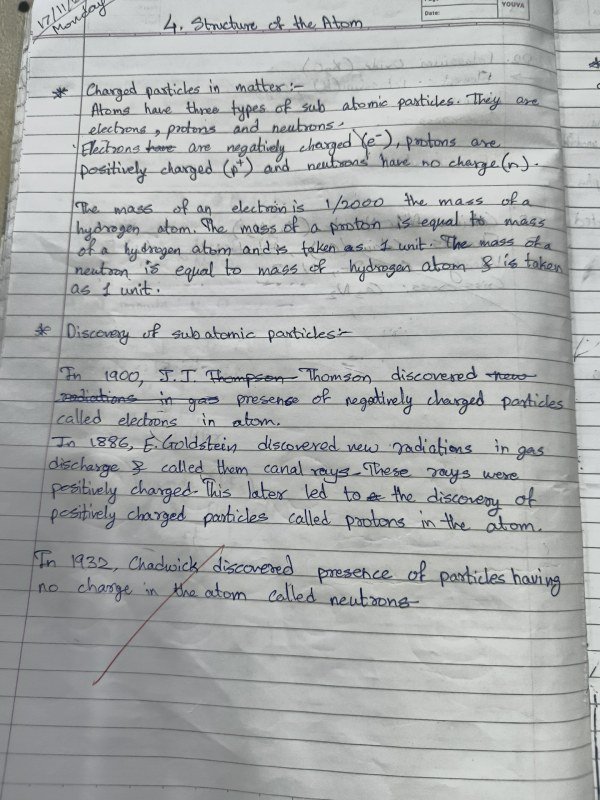 17/11/
Monday
4. Structure of the Atom
Date:
YOUVA
* Charged particles in matter :-
Atoms have three types of sub atomic particles. They are
electrons, protons and neutrons.
Electrons have are negatively charged (e⁻), protons are
positively charged (p⁺) and neutrons have no charge (n).
The mass of an electron is 1/2000 the mass of a
hydrogen atom. The mass of a proton is equal to mass
of a hydrogen atom and is taken as 1 unit. The mass of a
neutron is equal to mass of hydrogen atom & is taken
as 1 unit.
* Discovery of subatomic particles:-
In 1900, J.J. Thompson Thomson discovered new
radiations in gas presense of negatively charged particles
called electrons in atom.
In 1886, E. Goldstein discovered new radiations in gas
discharge & called them canal rays. These rays were
positively charged. This later led to the discovery of
positively charged particles called protons in the atom.
In 1932, Chadwick discovered presence of particles having
no charge in the atom called neutrons